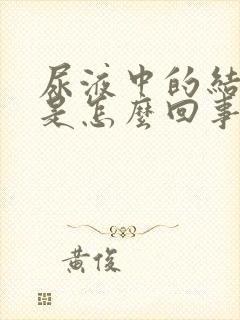 尿液中的結
是怎麼回事
黃俊